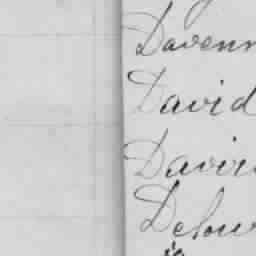 Davenn
David
Davis
Delou